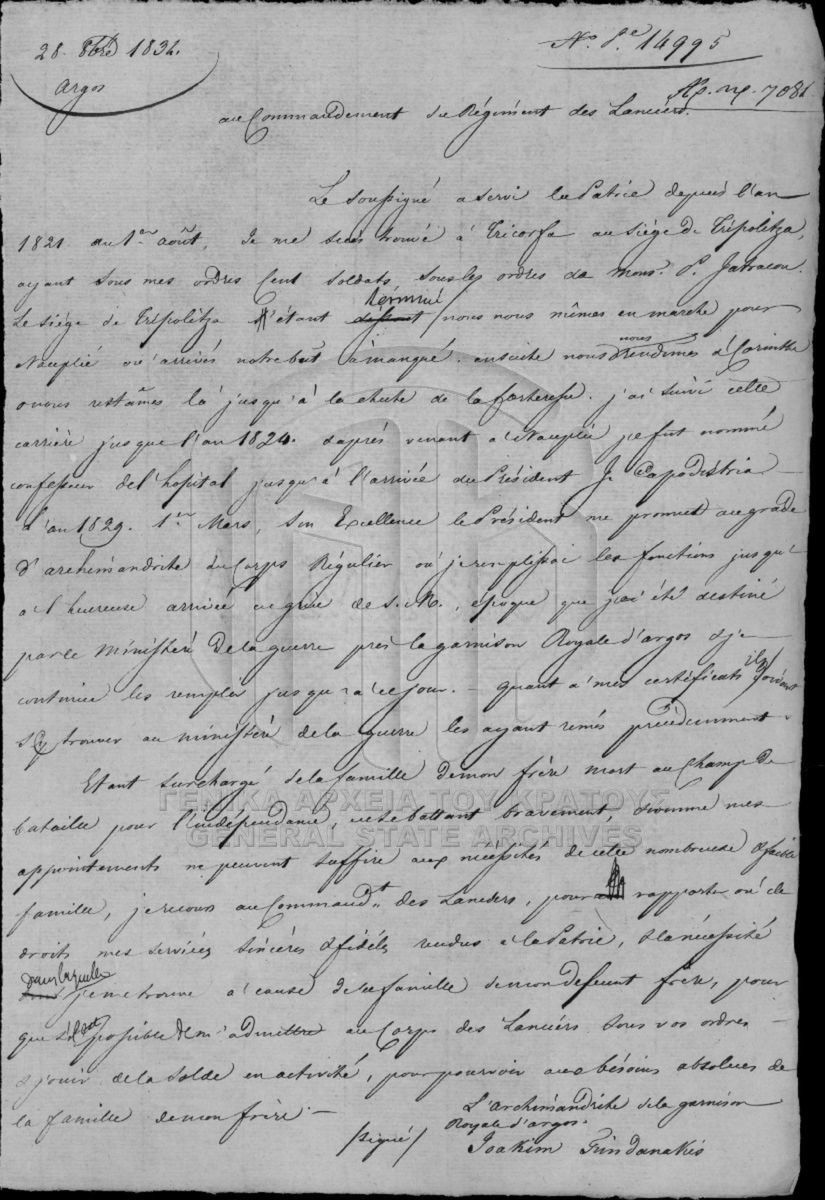 28. 8bre 1834.
Argos
No. d.e 14995
Αρ. πρ. 7081
au Commandement du Régiment des Lanciers.
Le soussigné a servi la Patrie depuis l'an
1821. du 1er août, Je me suis trouvé à Tricorfa au siége de Tripolitza,
ayant sous mes ordres Cent soldats, sous les ordres de Mons. P. Jatracou.
Le siége de Tripolitza s'étant terminé nous nous mêmes en marche pour
Nauplié où arrivés notre but à manqué. ensuite nous nous rendimes à Corinthe
où nous restâmes là jusqu'à la chute de la forteresse. j'ai suivi cette
carriére jusque l'an 1824. daprés venant à Nauplié je fut nommé
confesseur de l'hopital jusqu'à l'arrivée du Président J. Capodistria
L'an 1829. 1er Mars, Son Excellence le Président me promut au grade
d'archimandrite du Corps Régulier où je remplissai les fonctions jusqu'
a l'heureuse arrivée en gréce de S. M., époque que j'ai été destiné
par le Ministéré de la guerre prés la garnison Royale d'argos & je
continue les remplir jusqu'à ce jour. — quant a mes certificats ils doivent
se trouver au ministéré de la guerre les ayant remis précédemment.
Etant surchargé de la famille de mon frére mort au Champ de
bataille pour l'indépendance, en se battant bravement, & comme mes
appointements ne peuvent suffire aux nécessités de cette nombreuse & faible
famille, je recours au Command.t des Lanciers, pour rapporter où de
droits mes services sincéres & fidéls rendus a la Patrie, & la nécessité
dans laquelle je me trouve à cause de la famille de mon defeunt frére, pour
que s'il est possible de m'admettre au Corps des Lanciers sous vos ordres
& jouir de la solde en activité, pour pourvoir aux bésoins absolues de
la famille de mon frére. —
L'archimandrite de la garnison
Royale d'argos.
/signé/ Joakim Grindanakis
ΓΕΝΙΚΑ ΑΡΧΕΙΑ ΤΟΥ ΚΡΑΤΟΥΣ
GENERAL STATE ARCHIVES